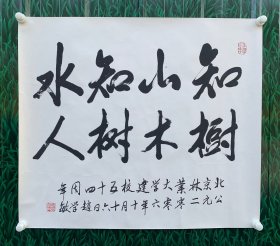 知山知水
樹木树人
北京林業大学建校五十四周年
公元二零零六年十月十六日趙学敏